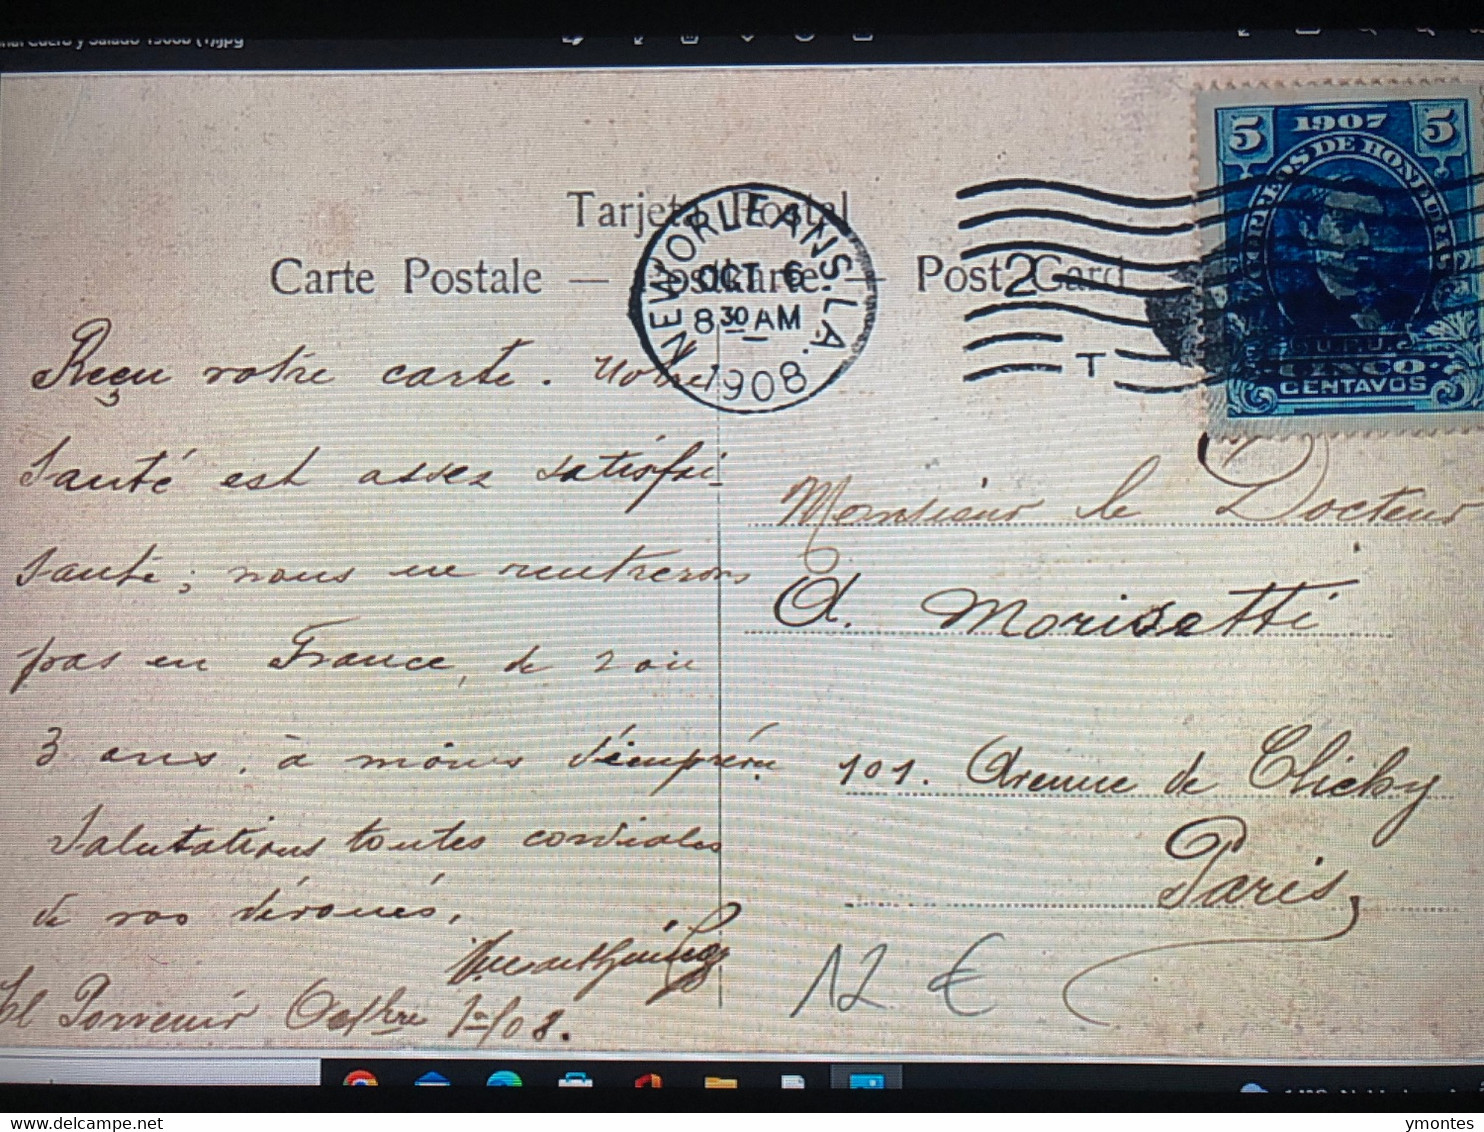 y Salado 1908 (1).jpg
5 1907 5
CORREOS DE HONDURAS
U.P.U.
CINCO
CENTAVOS
Tarjeta Postal
Carte Postale — Postkarte — Post Card
NEW ORLEANS, LA.
OCT 6
8 30 AM
1908
2
T
Reçu votre carte. Notre
Santé est assez satisfai-
sante; nous ne rentrerons
pas en France, de 2 ou
3 ans, à moins d'imprévu
Salutations toutes cordiales
de vos dévoués.
El Porvenir Octbre 1er/08.
Monsieur le Docteur
A. Morisetti
101. Avenue de Clichy
Paris,
12 €
Delcampe.net
ymontes